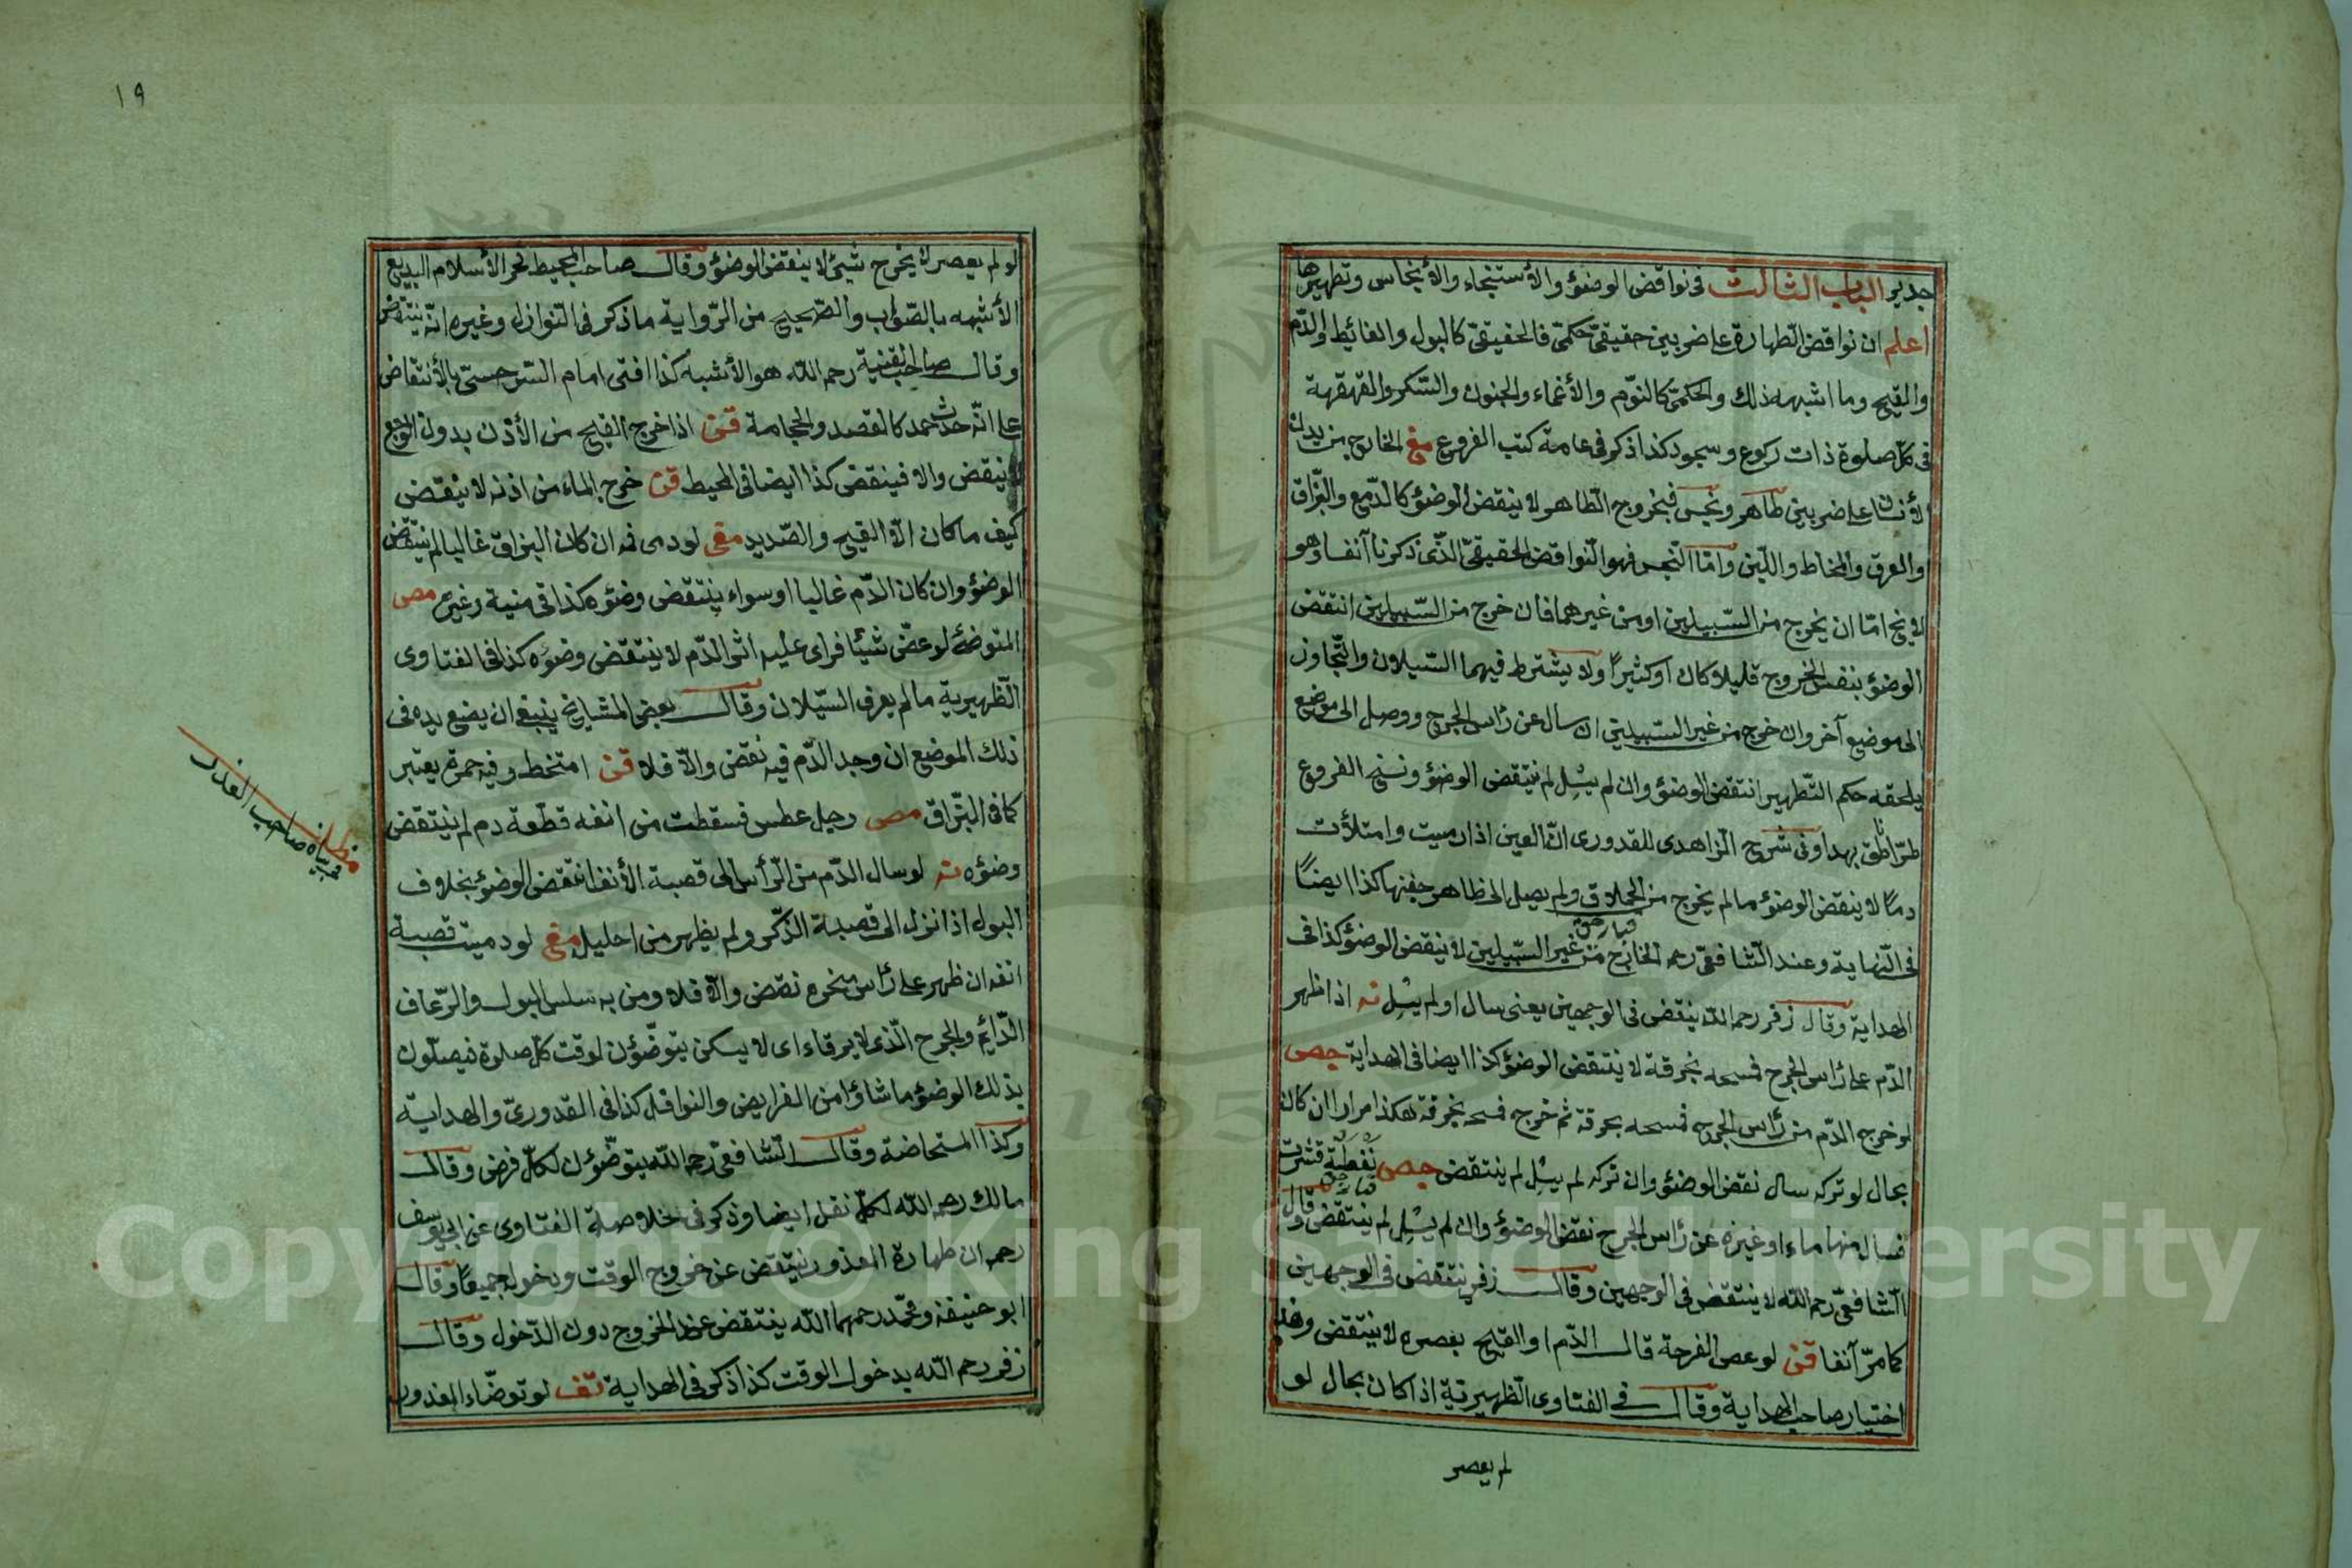 جدير الباب الثالث فى نواقض الوضؤ والأستنجاء والأنجاس وتطهيرها
اعلم ان نواقض الطهارة على ضربين حقيقىّ حكمىّ فالحقيقىّ كالبول والغائيط والدّم
والقيح وما اشبه ذلك والحكمىّ كالنّوم والأغماء والجنون والسّكر والقهقهة
فى كلّ صلوة ذات ركوع وسجود كذا ذكر فى عامة كتب الفروع مغ الخارج من بدن
الأنسان على ضربين طاهر ونجس فبخروج الطّاهر لا ينقض الوضؤ كالدّمع والبزّاق
والعرق والمخاط واللّبن وامّا النّجس فهو النّواقض الحقيقىّ الذّى ذكرنا آنفا وهو
لا يخ امّا ان يخرج من السّبيلين او من غيرهما فان خرج من السّبيلين انتقض
الوضؤ بنفس الخروج قليلا كان او كثيرًا ولا يشترط فيهما السّيلان والتّجاوز
الى موضع آخر وان خرج من غير السّبيلين ان سال عن رأس الجرح ووصل الى موضع
يلحقه حكم التّطهير انتقض الوضؤ وان لم يسل لم ينتقض الوضؤ ونسخ الفروع
طرّا ناطق بهذا وفى شرح الزاهدى للقدورى انّ العين اذا رميت وامتلأت
دمًا لا ينقض الوضؤ ما لم يخرج من الحملاق ولم يصل الى ظاهر جفنها كذا ايضًا
فى النّهاية وعند الشّافعىّ رحه الخارج من غير السّبيلين لا ينقض الوضؤ كذا فى
الهداية وقال زفر رحمه الله ينقض فى الوجهين يعنى سال او لم يسل ته اذا ظهر
الدّم على رأس الجرح فمسحه بخرقة لا ينتقض الوضؤ كذا ايضا فى الهداية حص
لو خرج الدّم من رأس الجرح فمسحه بخرقة ثم خرج فمسحه بخرقة هكذا مرارا ان كان
بحال لو تركه سال نقض الوضؤ وان تركه لم يسل لم ينتقض حص نفطة قشرت
فسال منها ماء او غيره عن رأس الجرح نقض الوضؤ وان لم يسل لم ينتقض وقال
الشّافعىّ رحمه الله لا ينتقض فى الوجهين وقال زفر ينتقض فى الوجهين
كما مرّ آنفا قن لو عصر القرحة قال الدّم او القيح بعصره لا ينتقض وهذا
اختيار صاحب الهداية وقال فى الفتاوى الظهيريّة اذا كان بحال لو
لم يعصر
١٩
لو لم يعصر لا يخرج شئ لا ينقض الوضؤ وقال صاحب المحيط فخر الأسلام البديع
الأشبه بالصّواب والصّحيح من الرّواية ما ذكر فى النّوازل وغيره انّه ينتقض
وقال صاحب القنية رحمه الله هو الأشبه كذا افتى امام السّرخسىّ بالأنتقاض
على انّه حدث عمد كالفصد والحجامة قن اذا خرج القيح من الأذن بدون الوجع
لا ينقض والا فينقض كذا ايضا فى المحيط قن خرج الماء من اذنه لا ينقض
كيف ما كان الّا القيح والصّديد مغ لو دمى فه ان كان البزاق غاليا لم ينتقض
الوضؤ وان كان الدّم غاليا او سواء ينتقض وضؤه كذا فى منية وغيره مص
المتوضّئ لو عضّ شيئا فراى عليه اثر الدّم لا ينتقض وضؤه كذا فى الفتاوى
الظّهيرية ما لم يعرف السّيلان وقال بعض المشايخ ينبغى ان يضع يده فى
ذلك الموضع ان وجد الدّم فيه نقض والّا فلا قن امتخط وفيه حمرة يعتبر
كما فى البزّاق مص رجل عطس فسقطت من انفه قطعة دم لم ينتقض
وضؤه ته لو سال الدّم من الرّأس الى قصبة الأنف انتقض الوضؤ بخلاف
البول اذا نزل الى قصبة الذّكر ولم يظهر من احليل مغ لو دميت قصبة
انفه ان ظهر على رأس منخره نقض والّا فلا ومن به سلس البول والرّعاف
الدّايم والجرح الّذى لا يرقاء اى لا يسكن يتوضّؤن لوقت كلّ صلوة فيصلّون
بذلك الوضؤ ما شاؤا من الفرايض والنوافل كذا فى القدورىّ والهداية
وكذا المستحاضة وقال الشّافعىّ رحمه الله يتوضّؤن لكلّ فرض وقال
مالك رحمه الله لكلّ نفل ايضا وذكر فى خلاصة الفتاوى عن ابى يوسف
رحمه ان طهارة المعذور ينتقض عن خروج الوقت ودخوله جميعًا وقال
ابو حنيفة ومحمّد رحمهما الله ينتقض عند الخروج دون الدّخول وقال
زفر رحمه الله بدخول الوقت كذا ذكر فى الهداية تف لو توضّاء المعذور
مطلب
فى بيان صاحب العذر
Copyright © King Saud University